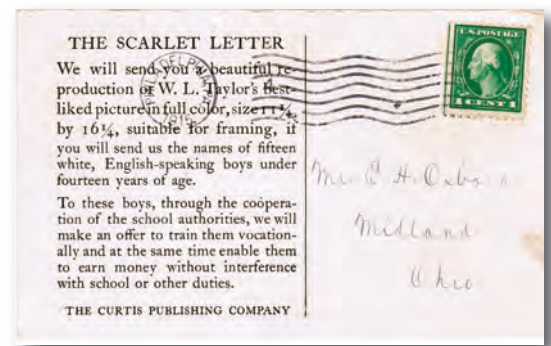 THE SCARLET LETTER
We will send you a beautiful re-
production of W. L. Taylor's best-
liked picture in full color, size 11¼
by 16¼, suitable for framing, if
you will send us the names of fifteen
white, English-speaking boys under
fourteen years of age.
To these boys, through the coöpera-
tion of the school authorities, we will
make an offer to train them vocation-
ally and at the same time enable them
to earn money without interference
with school or other duties.
THE CURTIS PUBLISHING COMPANY
U.S. POSTAGE
1 CENT 1
Midland
Ohio